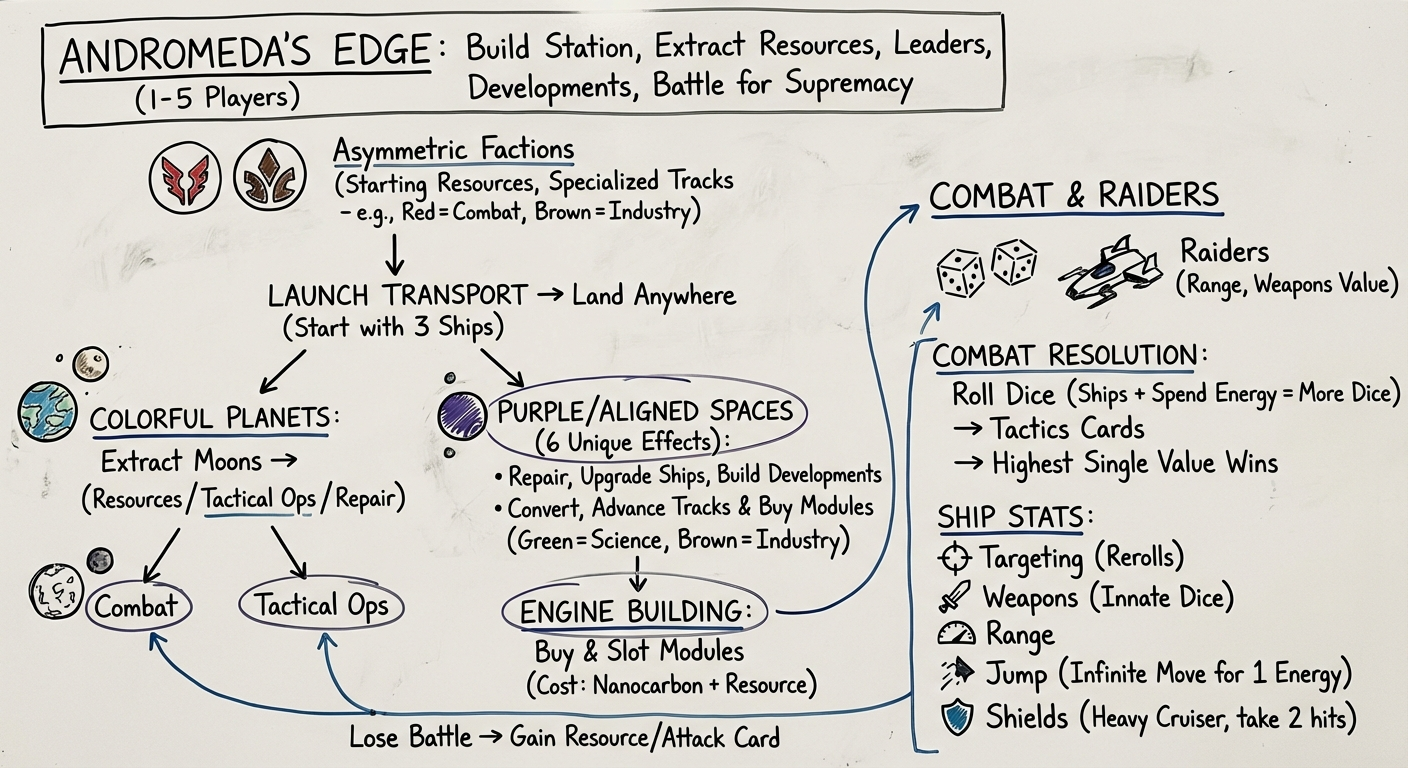 ANDROMEDA'S EDGE: Build Station, Extract Resources, Leaders,
(1-5 Players) Developments, Battle for Supremacy
Asymmetric Factions
(Starting Resources, Specialized Tracks
- e.g., Red = Combat, Brown = Industry)
LAUNCH TRANSPORT → Land Anywhere
(Start with 3 Ships)
COLORFUL PLANETS:
Extract Moons →
(Resources / Tactical Ops / Repair)
Combat
Tactical Ops
PURPLE/ALIGNED SPACES
(6 Unique Effects):
• Repair, Upgrade Ships, Build Developments
• Convert, Advance Tracks & Buy Modules
(Green = Science, Brown = Industry)
ENGINE BUILDING:
Buy & Slot Modules
(Cost: Nanocarbon + Resource)
Lose Battle → Gain Resource/Attack Card
COMBAT & RAIDERS
Raiders
(Range, Weapons Value)
COMBAT RESOLUTION:
Roll Dice (Ships + Spend Energy = More Dice)
→ Tactics Cards
→ Highest Single Value Wins
SHIP STATS:
Targeting (Rerolls)
Weapons (Innate Dice)
Range
Jump (Infinite Move for 1 Energy)
Shields (Heavy Cruiser, take 2 hits)